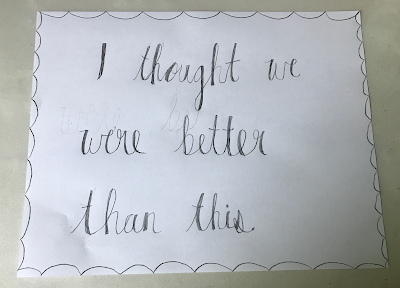 I thought we
were better
than this.